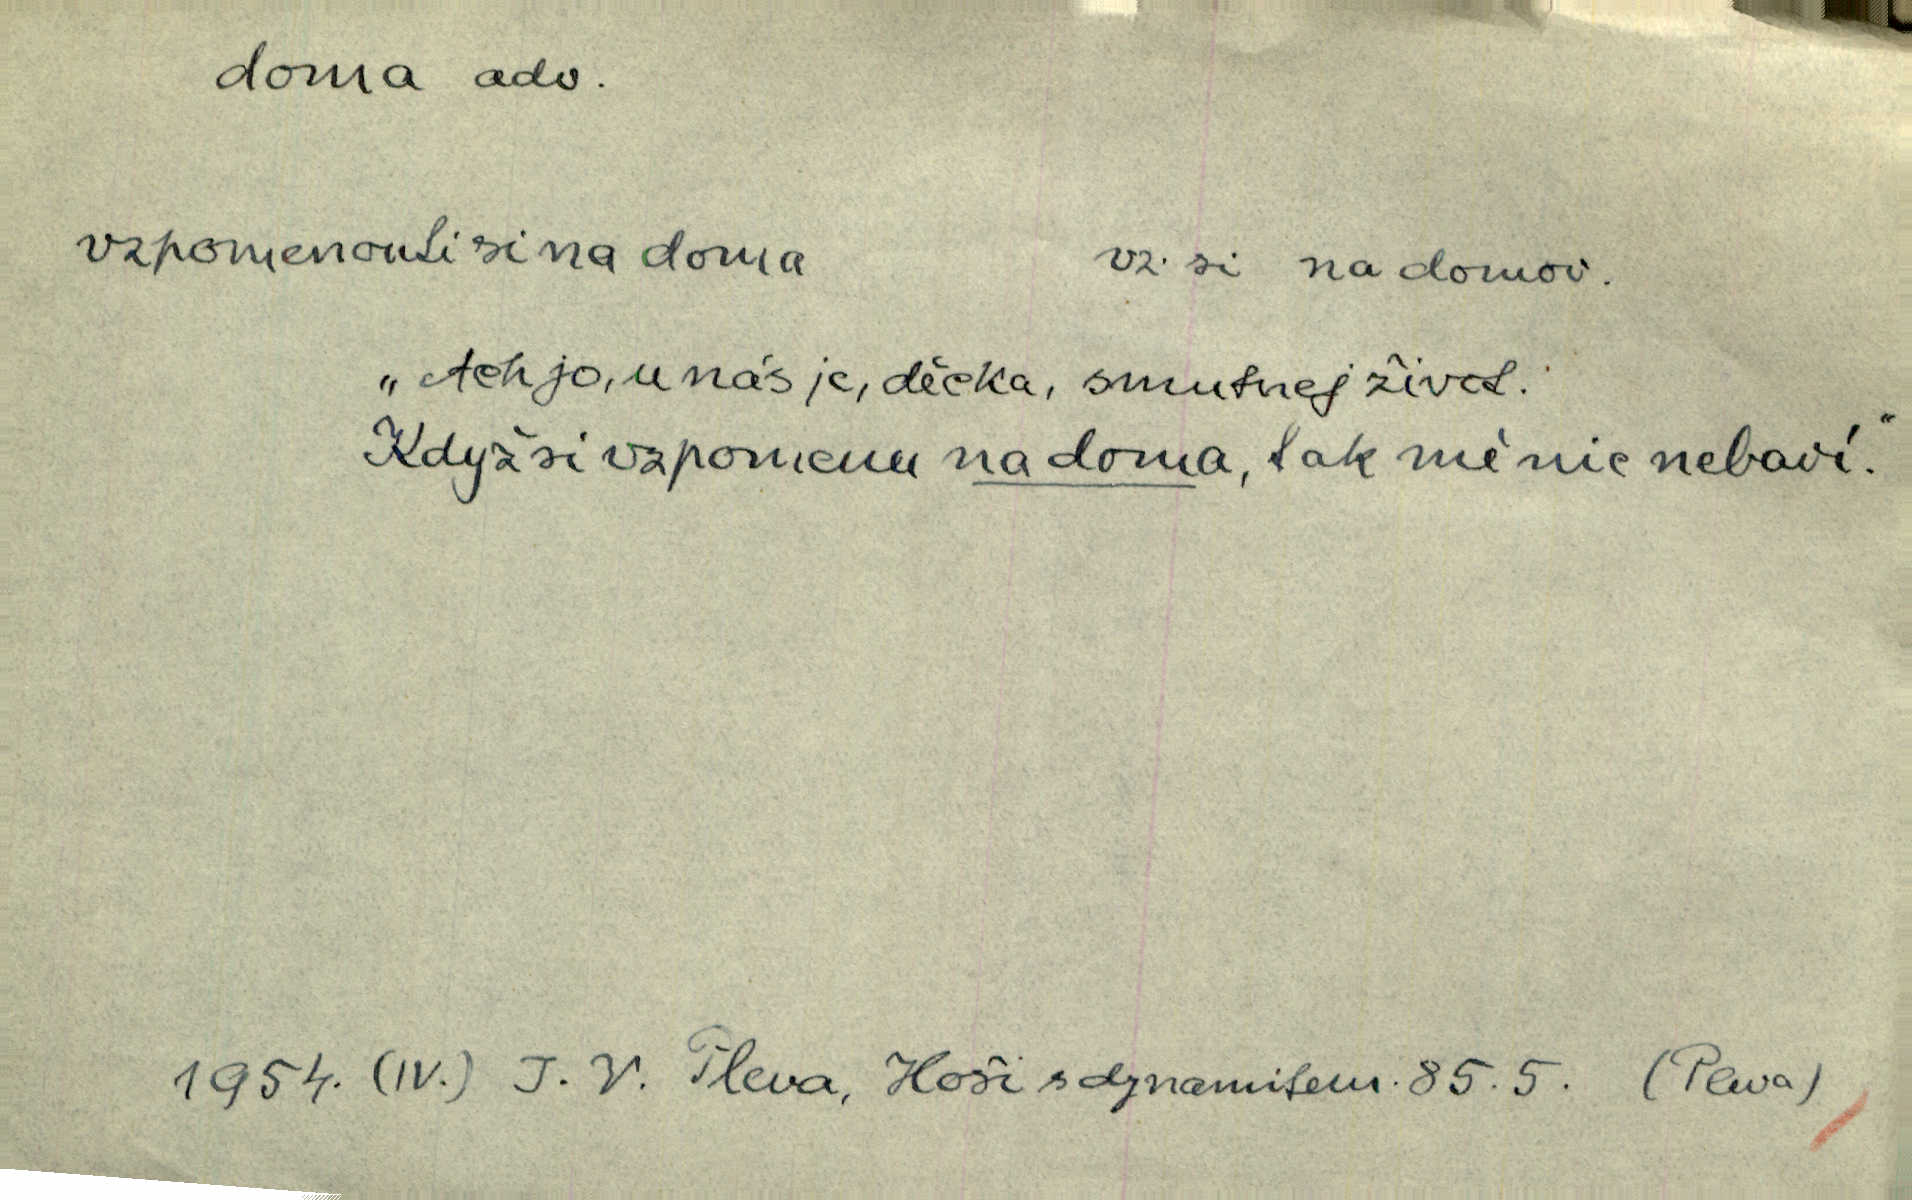 doma adv.
vzpomenouti si na doma vz. si na domov.
„Ach jo, u nás je, děcka, smutnej život.
Když si vzpomenu na doma, tak mě nic nebaví.“
1954. (IV.) J. V. Pleva, Hoši s dynamitem. 85. 5. (Pleva)